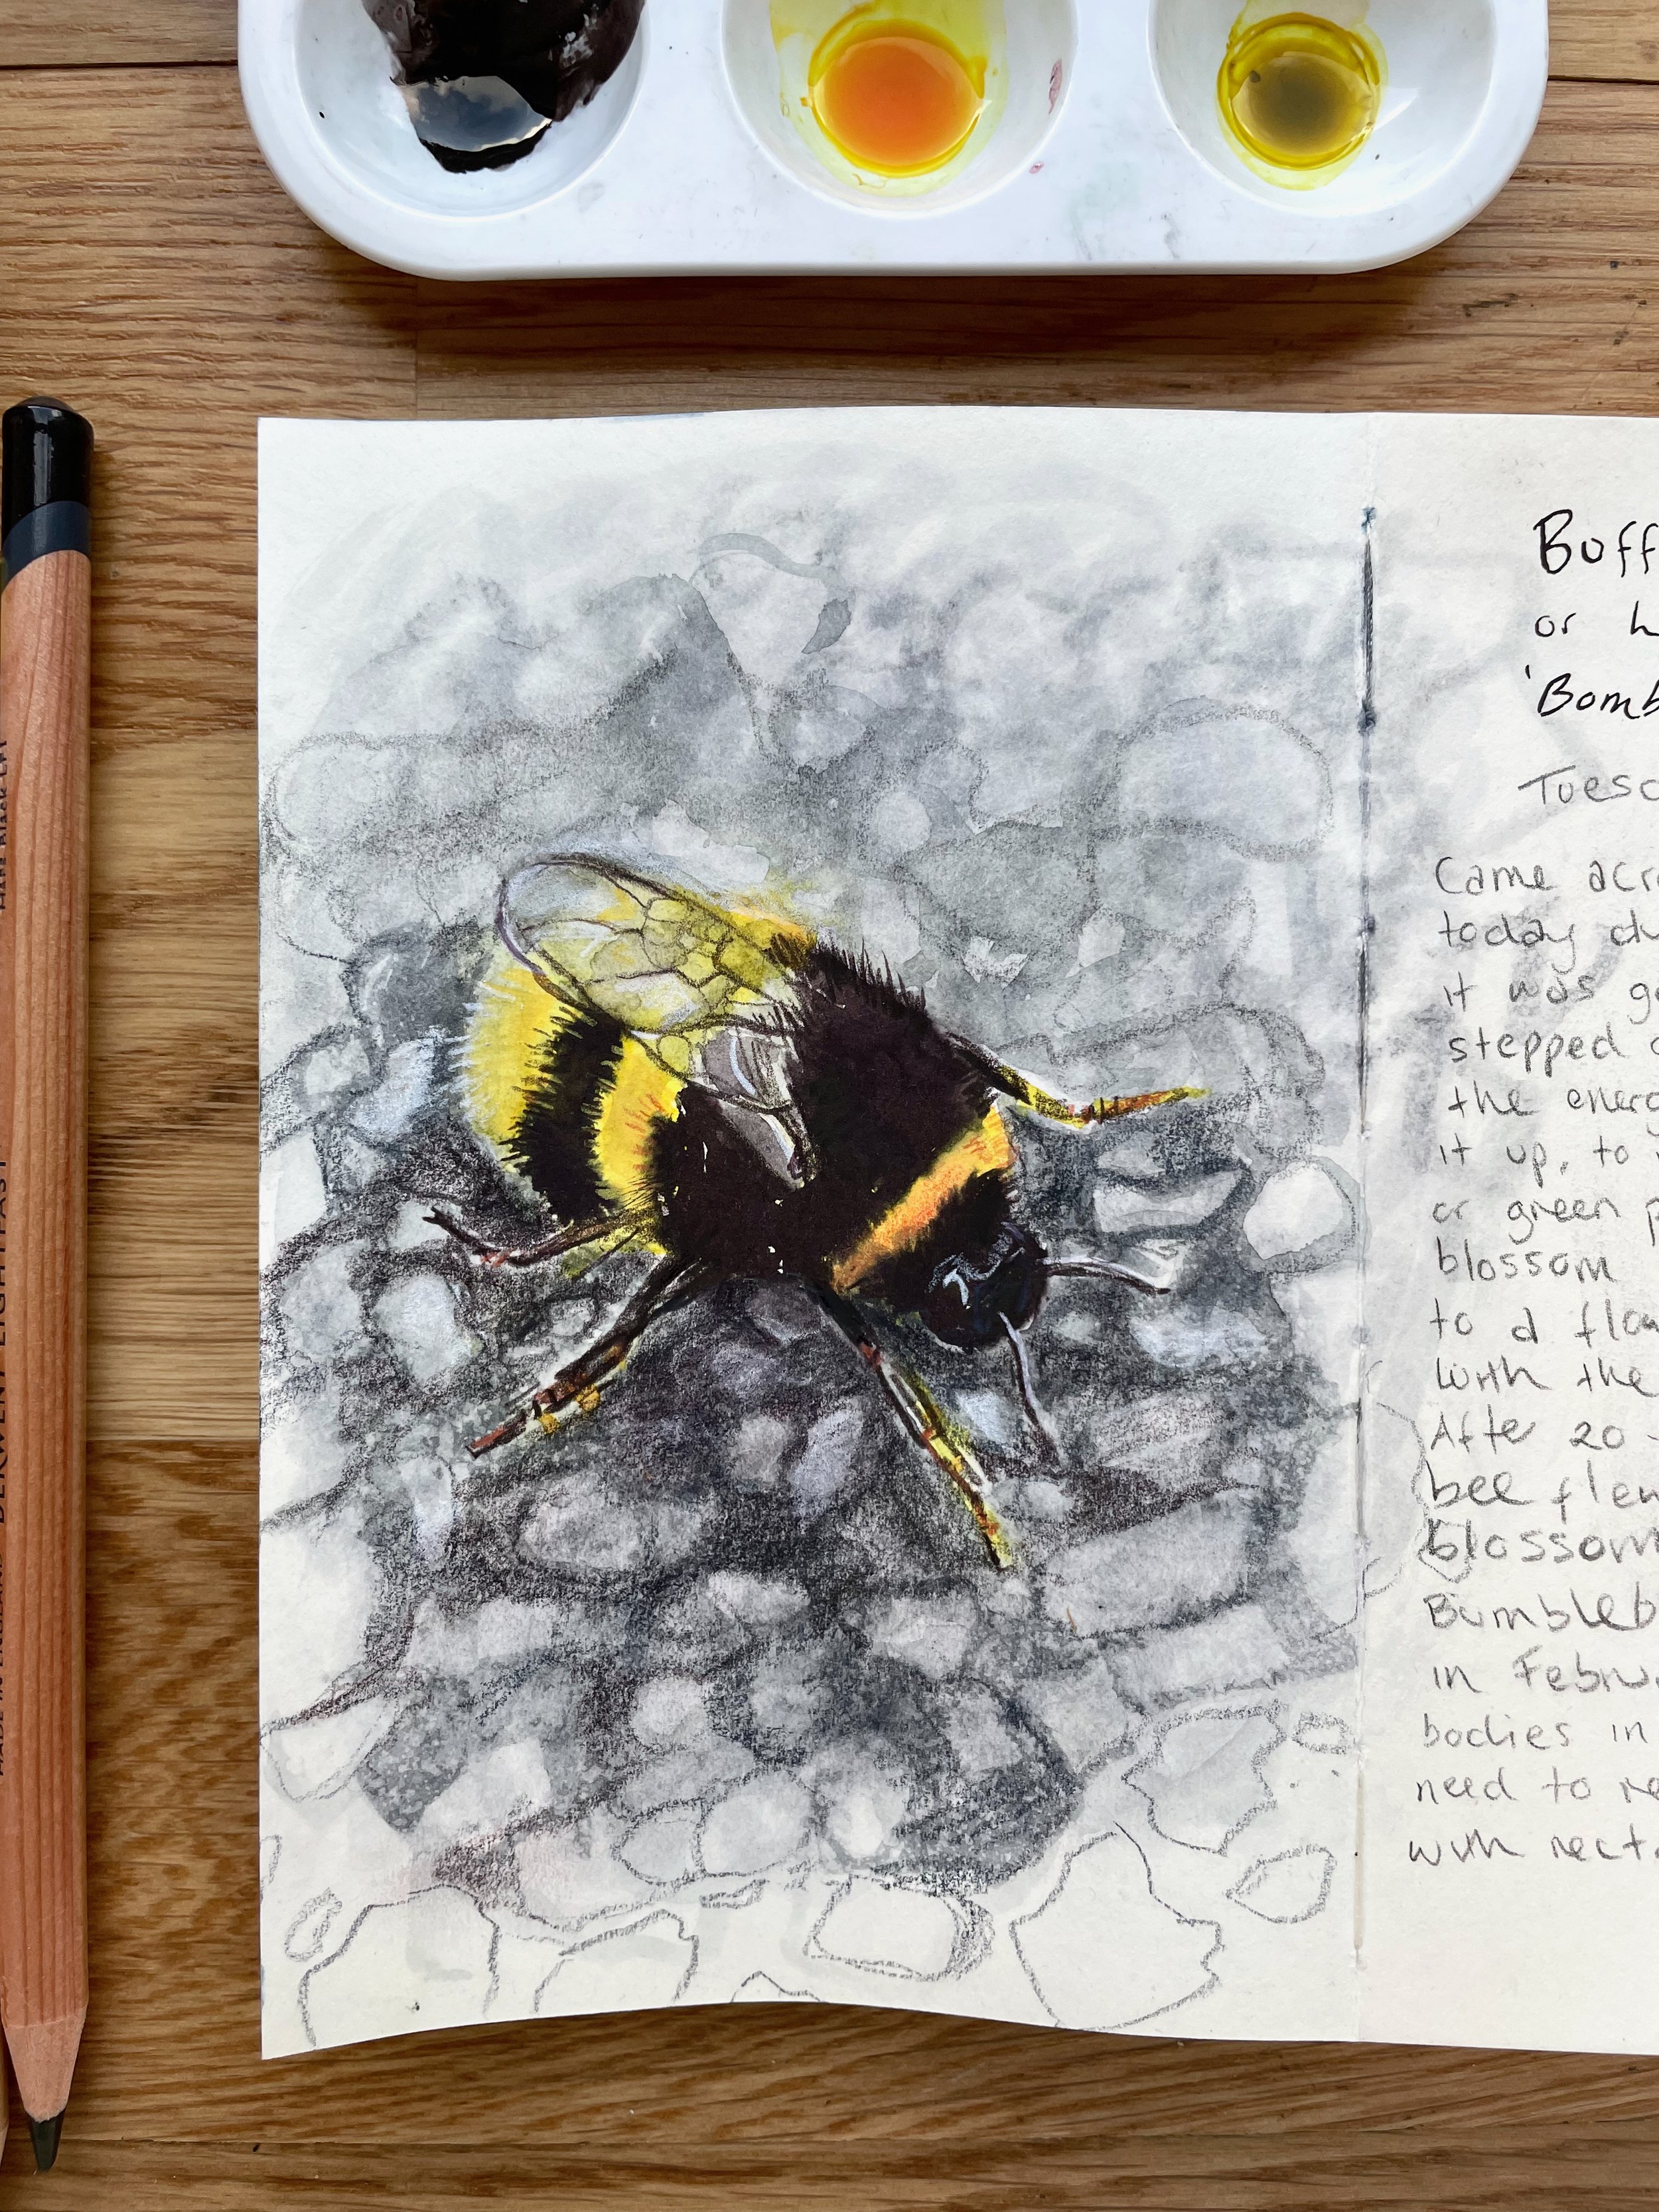 Buff
or h
'Bomb
Tuesd
Came acr
today du
it was go
stepped o
the energ
it up, to
or green p
blossom
to a flow
with the
After 20-
bee flew
blossom
Bumbleb
in Febru
bodies in
need to re
with necta
DERWENT LIGHTFAST
MADE IN ENGLAND